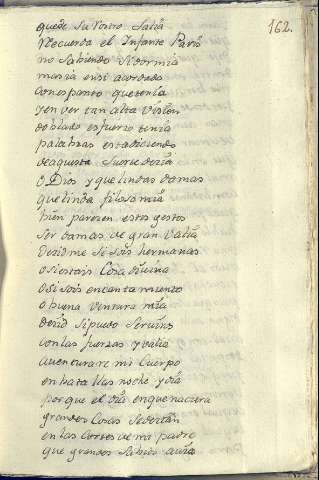 162.
quede su rostro Salia
Recuerda el Infante Paris
no Sabiendo Si dormia
mas ia ensi acordado
con espanto que tenia
y en ver tan alta Vision
doblado esfuerzo tenia
palabras esta diciendo
de aquesta Suerte decia
o Dios y que lindas damas
que linda filosomia
bien parecen estos gestos
ser damas de gran Valia
decid me si sois hermanas
o si estais Cosa divina
o si sois encantamiento
o buena Ventura mia
decid Si puedo Serviros
con las fuerzas y valia
aventurare mi Cuerpo
en batallas noche y dia
por que el dia en que naciera
grandes Cosas Se decian
en las Cortes de mi padre
que grandes Sabios avia